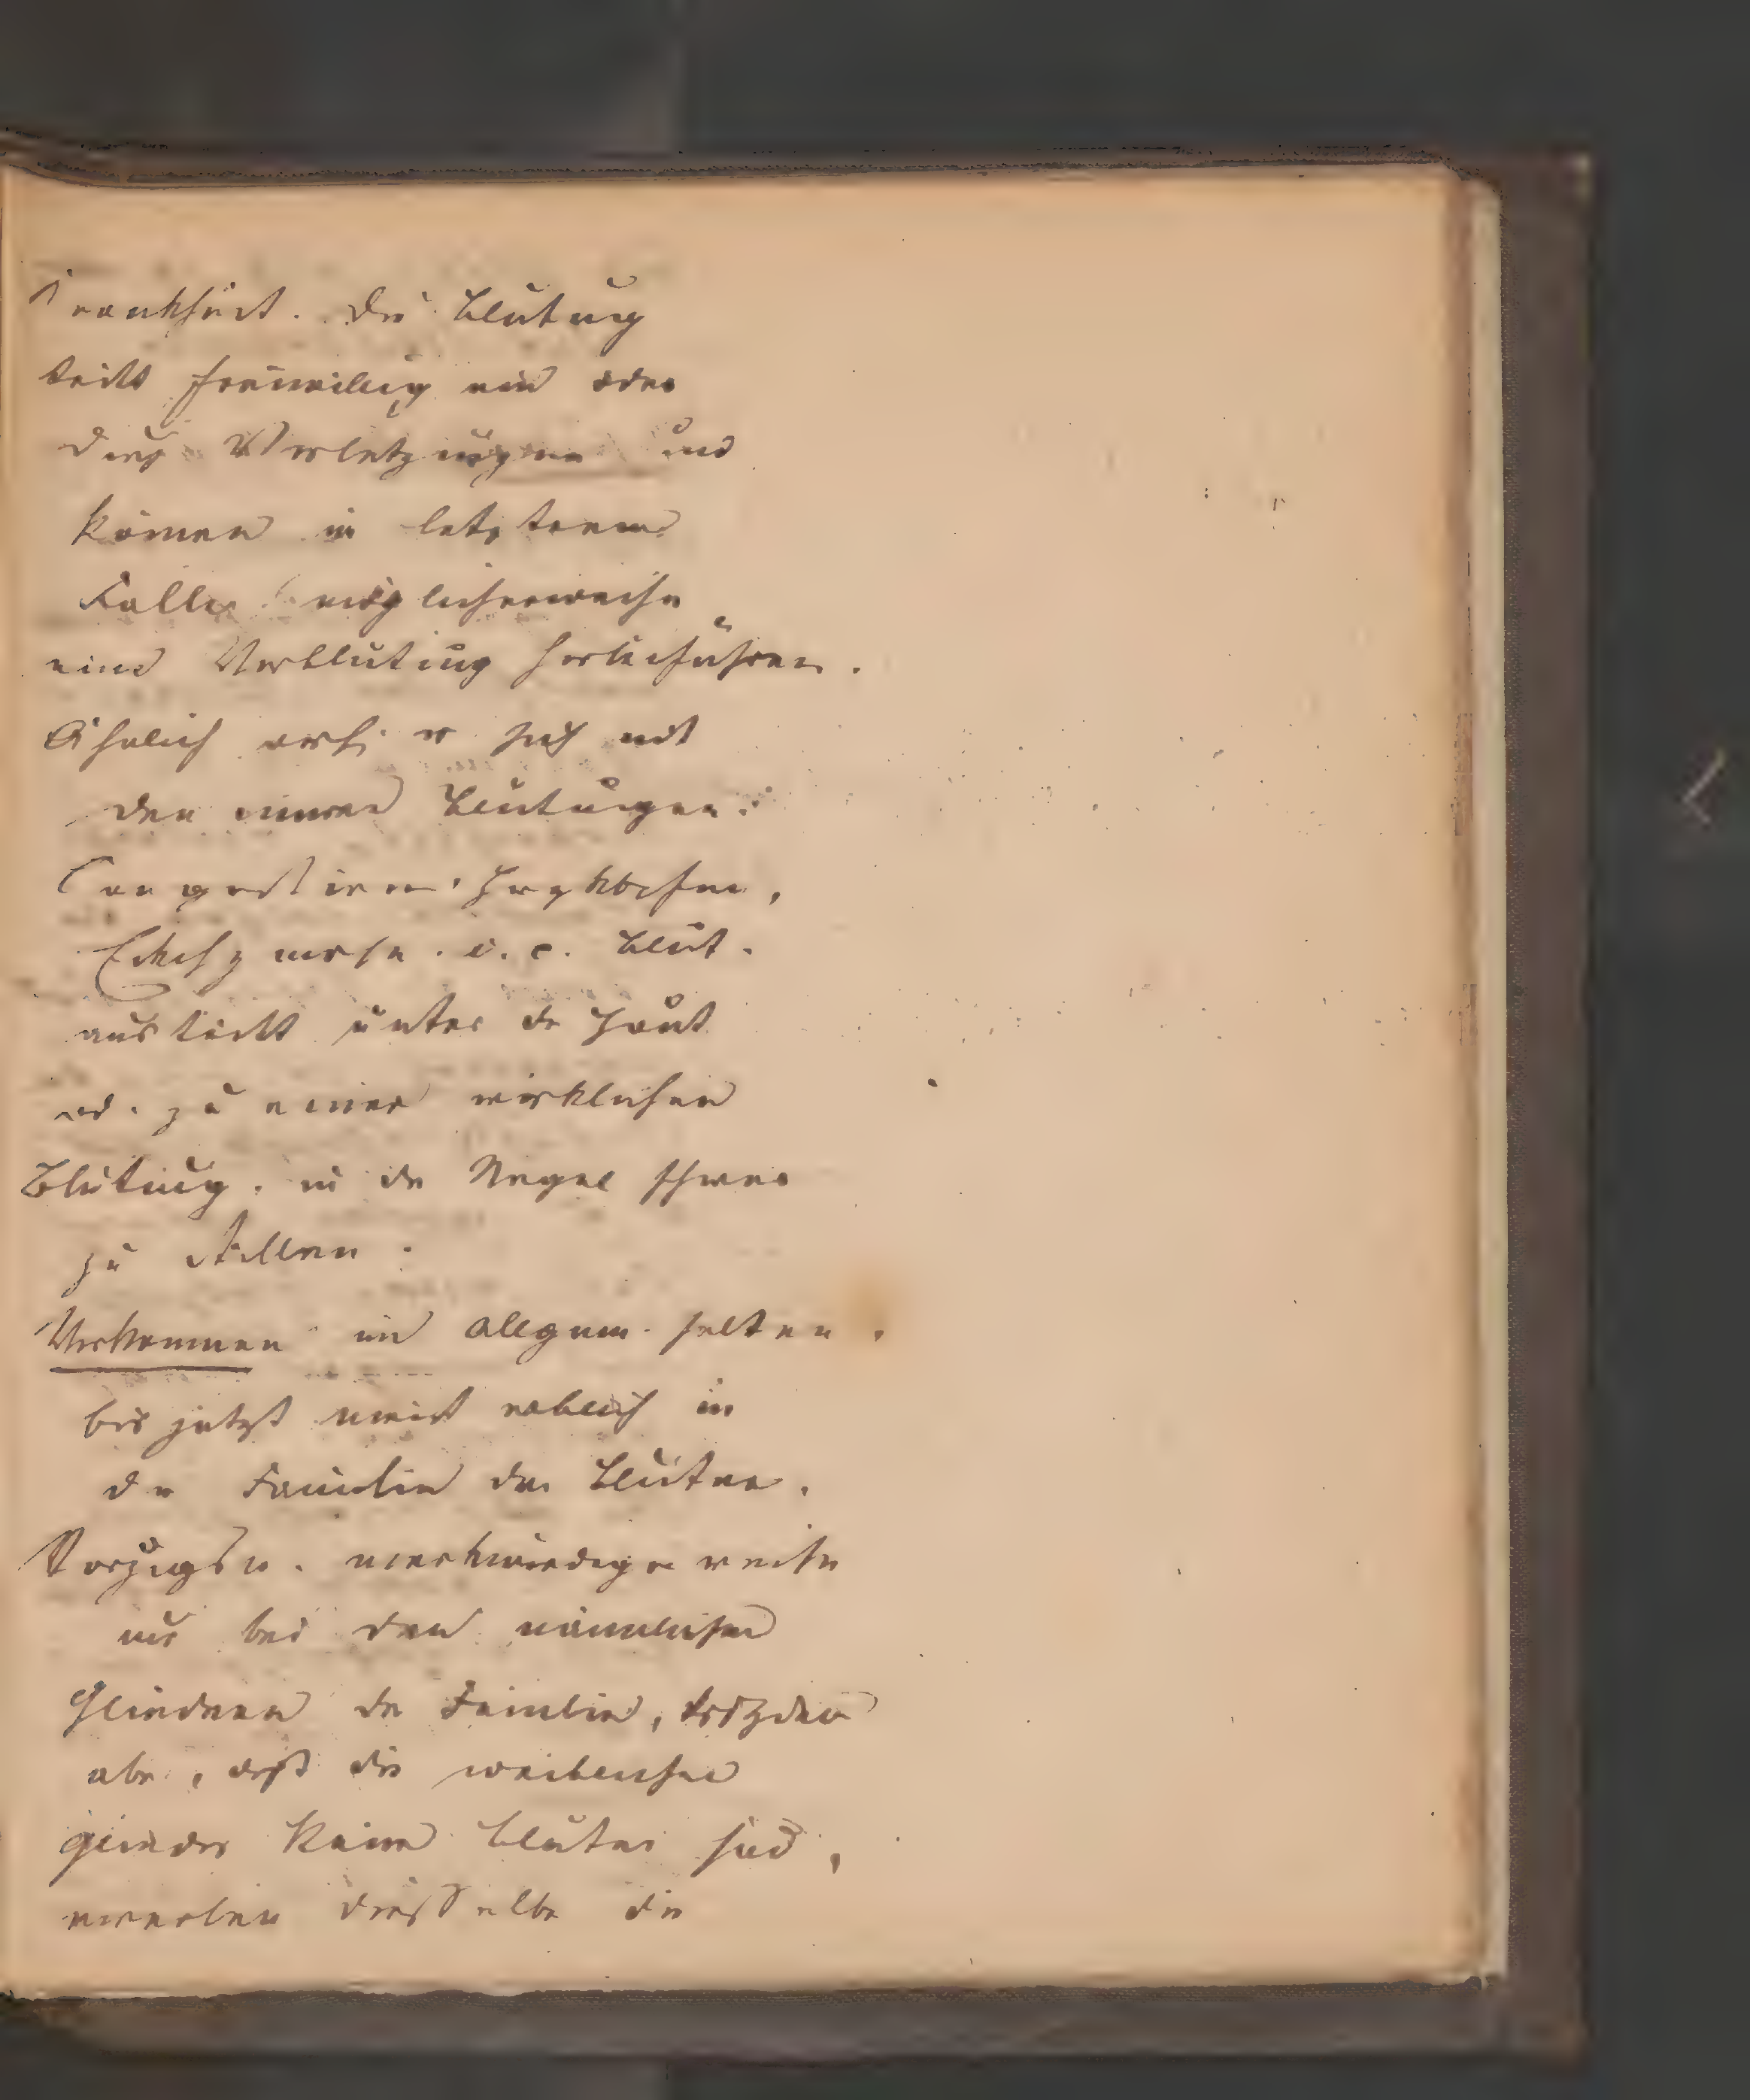 Krankheit. Die Blutung
tritt freiwillig ein oder
durch Verletzungen und
können in letzterem
Falle möglicherweise
eine Verblutung herbeiführen.
Ähnlich es sich mit
den inneren Blutungen.
Congestionen, Herzklopfen,
Ekchymose. i. e. Blut.
austritt unter der Haut
od. zu einer wirklichen
Blutung. in der Regel schwer
zu stillen.
Vorkommen im allgem. selten,
bis jetzt meist erblich in
der Familie der Bluter.
Vorzugsw. merkwürdigerweise
nur bei den männlichen
Gliedern der Familie, trotzdem
aber, daß die weiblichen
Glieder keine Bluter sind,
vererben dieselbe die